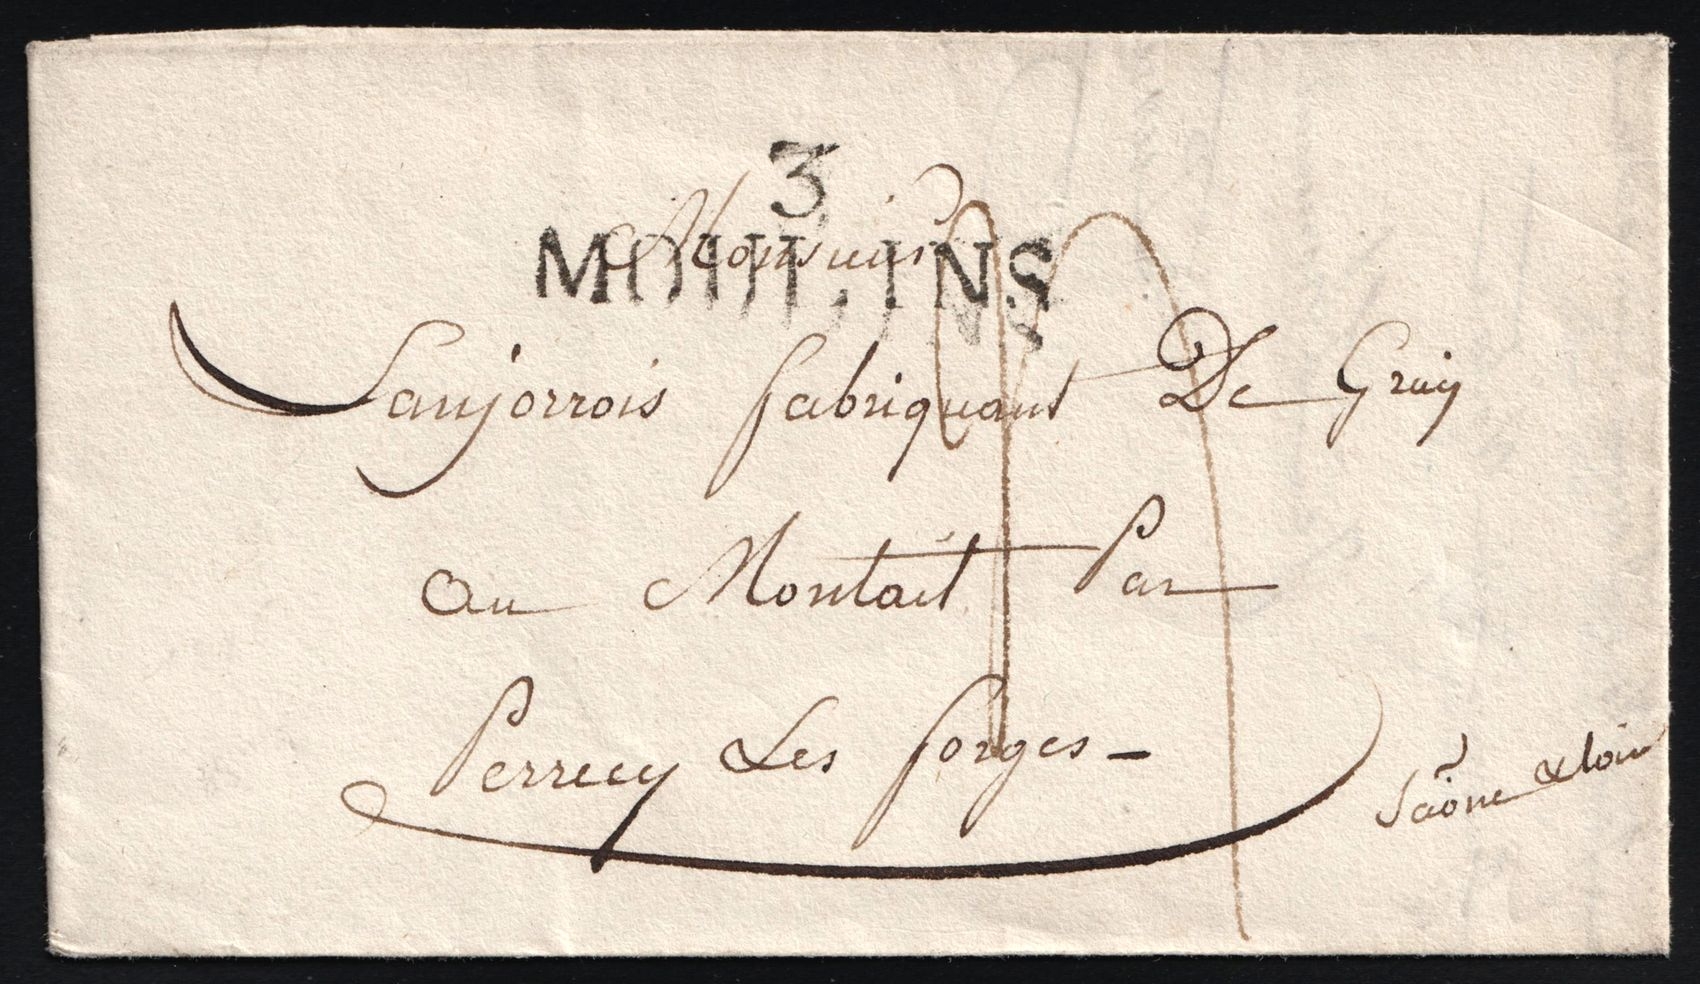 3
MOULINS
Monsieur
Laujorrois fabriquant De Gray
au Montait Par
Perrecy Les forges -
Saône & loire